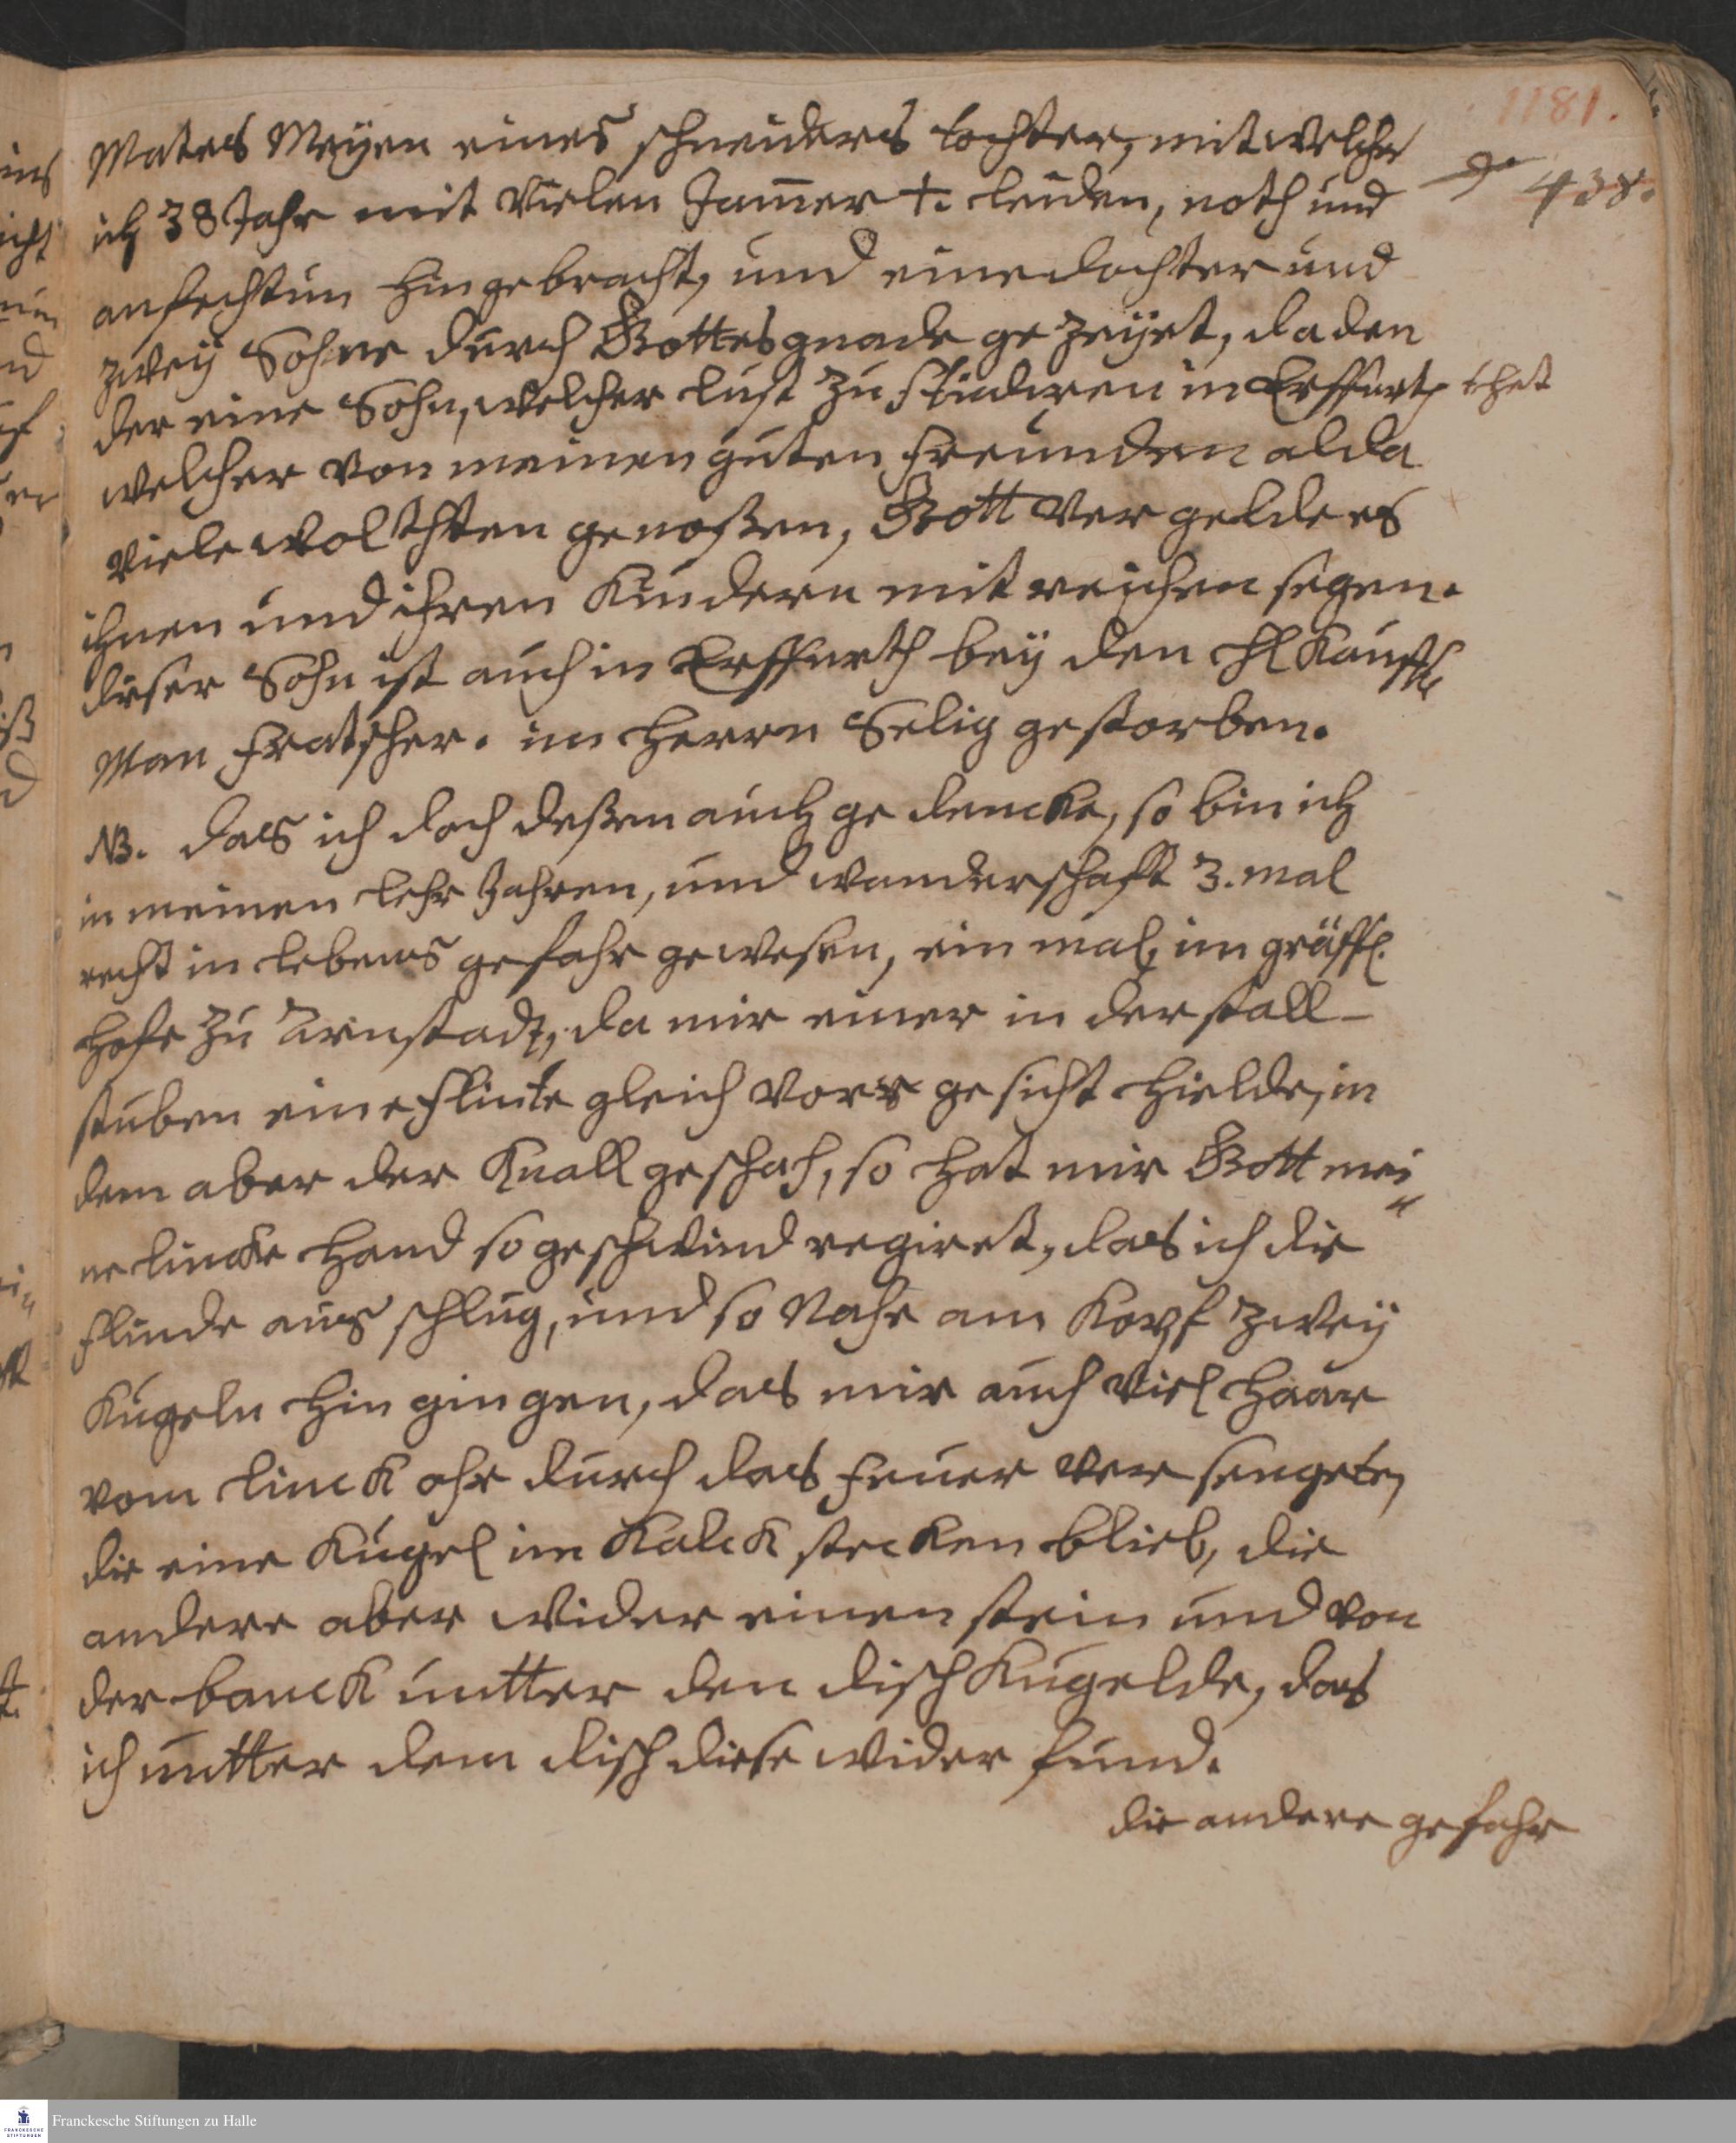 1181.
438.
Mates Meÿen eines schneiders tochter, mit welcher
ich 38 Jahr mit vielen Jam̄er †. leiden, noth und
anfechtun hingebracht, und eine dochter und
zweÿ Sohne durch Gottes gnade gezeÿet, da den
der eine Sohn, welcher lust zu studiren in Erffurth thet
welcher von meinen guten freunden alda
viele wolthten genoßen, Gott vergelde es
ihnen und ihren Kindern mit reichen segen.
dieser Sohn ist auch in Erffurth beÿ den H Kauff
Man fratscher. im Herrn Selig gestorben.
NB. das ich doch deßen auch gedencke, so bin ich
in meinen Lehr Jahren, und wanderschafft 3. mal
recht in lebens gefahr gewesen, ein mal, im gräffl.
Hofe zu Arnstadt, da mir einer in der stall-
stuben eine flinte gleich vors gesicht hielde, in
dem aber der Knall geschah, so hat mir Gott mei„
ne lincke Hand so geschwind regiret, das ich die
flinde aus schlug, und so Nahe am Kopf zweÿ
Kugeln hin gingen, das mir auch viel Haar
vom linck ohr durch das feuer versengete,
die eine Kugel im Kalck stecken blieb, die
andere aber wider einen stein und von
der banck untter den disch Kugelde, das
ich untter dem disch diese wider fund.
die andere gefahr
Franckesche Stiftungen zu Halle